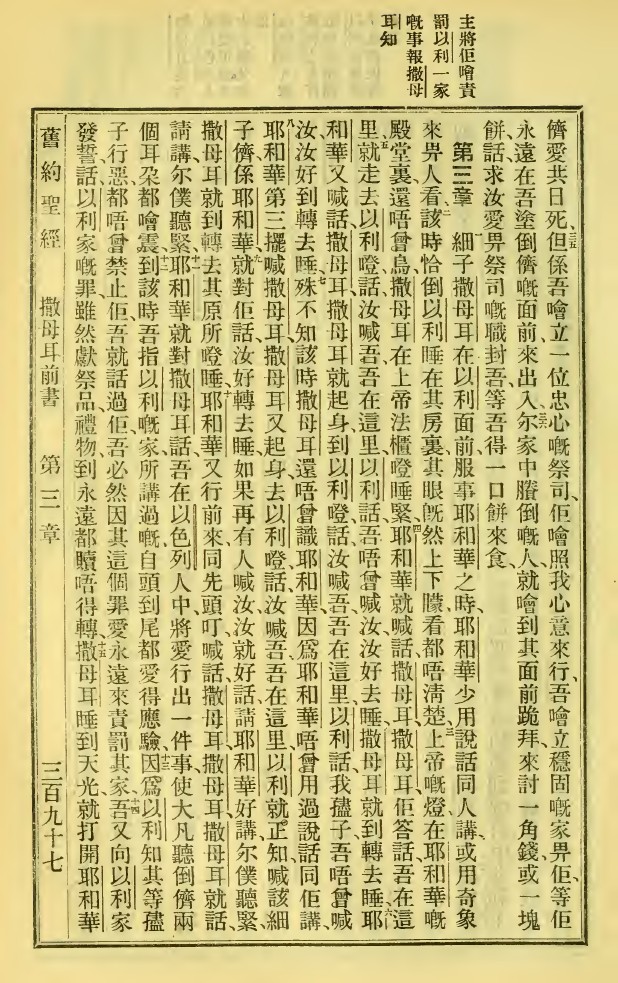 主將佢噲責
罰以利一家
嘅事報撒母
耳知
儕愛共日死但係吾噲立一位忠心嘅祭司佢噲照我心意來行吾噲立穩固嘅家畀佢等佢
永遠在吾塗倒儕嘅面前來出入尔家中賸倒嘅人就噲到其面前跪拜來討一角錢或一塊
餅話求汝愛畀祭司嘅職封吾等吾得一口餅來食
第三章 細子撒母耳在以利面前服事耶和華之時耶和華少用說話同人講或用奇象
來畀人看該時恰倒以利睡在其房裏其眼旣然上下矇看都唔淸楚上帝嘅燈在耶和華嘅
殿堂裏還唔曾烏撒母耳在上帝法櫃墱睡緊耶和華就喊話撒母耳撒母耳佢答話吾在這
里就走去以利墱話汝喊吾吾在這里以利話吾唔曾喊汝汝好去睡撒母耳就到轉去睡耶
和華又喊話撒母耳撒母耳就起身到以利墱話汝喊吾吾在這里以利話我㜽子吾唔曾喊
汝汝好到轉去睡殊不知該時撒母耳還唔曾識耶和華因爲耶和華唔曾用過說話同佢講
耶和華第三擺喊撒母耳撒母耳又起身去以利墱話汝喊吾吾在這里以利就正知喊該細
子儕係耶和華就對佢話汝好轉去睡如果再有人喊汝汝就好話請耶和華好講尔僕聽緊
撒母耳就到轉去其原所墱睡耶和華又行前來同先頭叮喊話撒母耳撒母耳撒母耳就話
請講尔僕聽緊耶和華就對撒母耳話吾在以色列人中將愛行出一件事使大凡聽倒儕兩
個耳朶都噲震到該時吾指以利嘅家所講過嘅自頭到尾都愛得應驗因爲以利知其等㜽
子行惡都唔曾禁止佢吾就話過佢吾必然因其這個罪愛永遠來責罰其家吾又向以利家
發誓話以利家嘅罪雖然獻祭品禮物到永遠都贖唔得轉撒母耳睡到天光就打開耶和華
舊約聖經 撒母耳前書 第三章 三百九十七